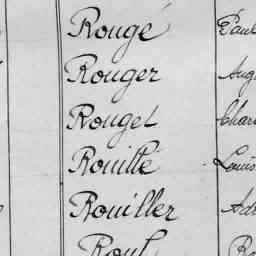 Rougé Paul
Rouger Aug
Rouget Char
Rouillé Louis
Rouiller Ad
Roul